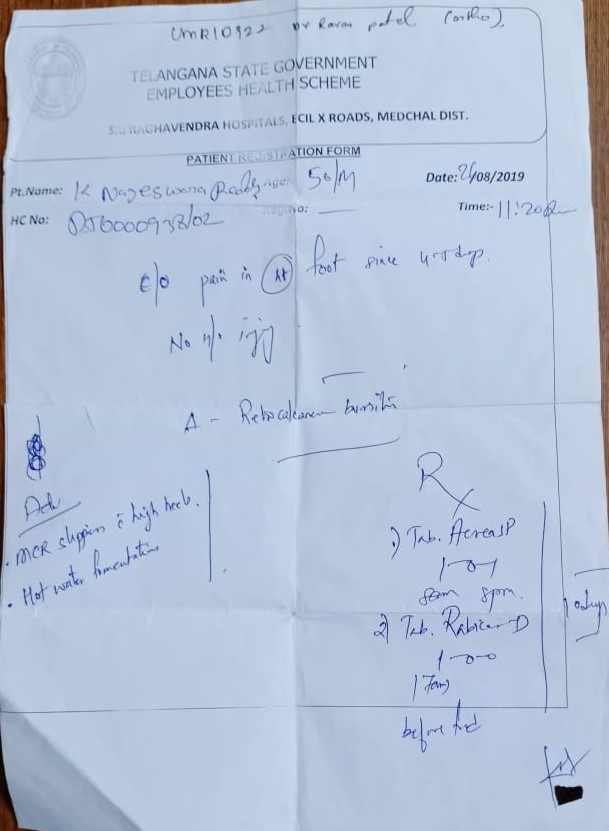 UMR10922 Dr Karan Patel (ortho).
TELANGANA STATE GOVERNMENT
EMPLOYEES HEALTH SCHEME
SRI RAGHAVENDRA HOSPITALS, ECIL X ROADS, MEDCHAL DIST.
PATIENT REGISTRATION FORM
Pt.Name: K Nageswara Reddy Age: 50/M Date: 26/08/2019
HC No: /02 Reg.No: — Time:- 11:20
C/o pain in foot since 4-5 days.
No h/o injury
Δ - Retrocalcaneum bursitis
Rx
Adv
. MCR slippers c high heels.
. Hot water fomentation
1) Tab. P
1-0-1
8am 8pm.
2) Tab. D
1-0-0
before food
10 days